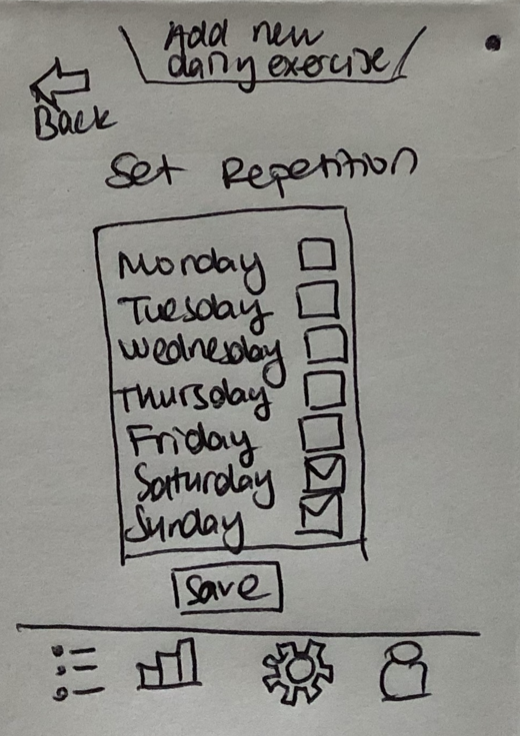 Add new
daily exercise
Back
Set Repetition
Monday
Tuesday
Wednesday
Thursday
Friday
Saturday
Sunday
Save